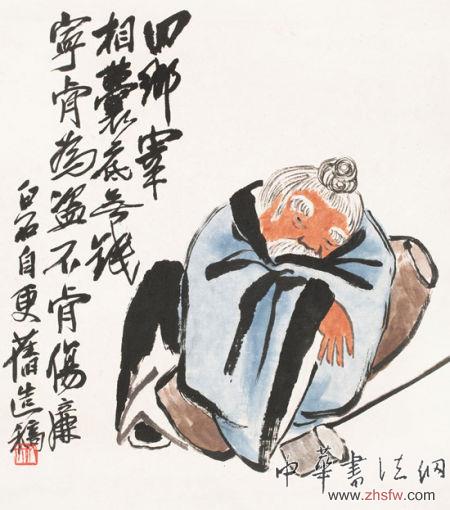 回鄉宰
相囊底無錢
寧肯為盜不肯傷廉
白石自更舊造稿
中華書法網
www.zhsfw.com